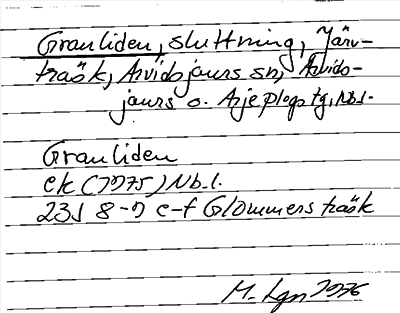 Granliden, sluttning, Järv-
träsk, Arvidsjaurs sn, Arvids-
jaurs o. Arjeplogs tg, Nb.l.
Granliden
ek (1975) Nb.l.
23J 8-9 e-f Glommersträsk
M. Lgn 1976